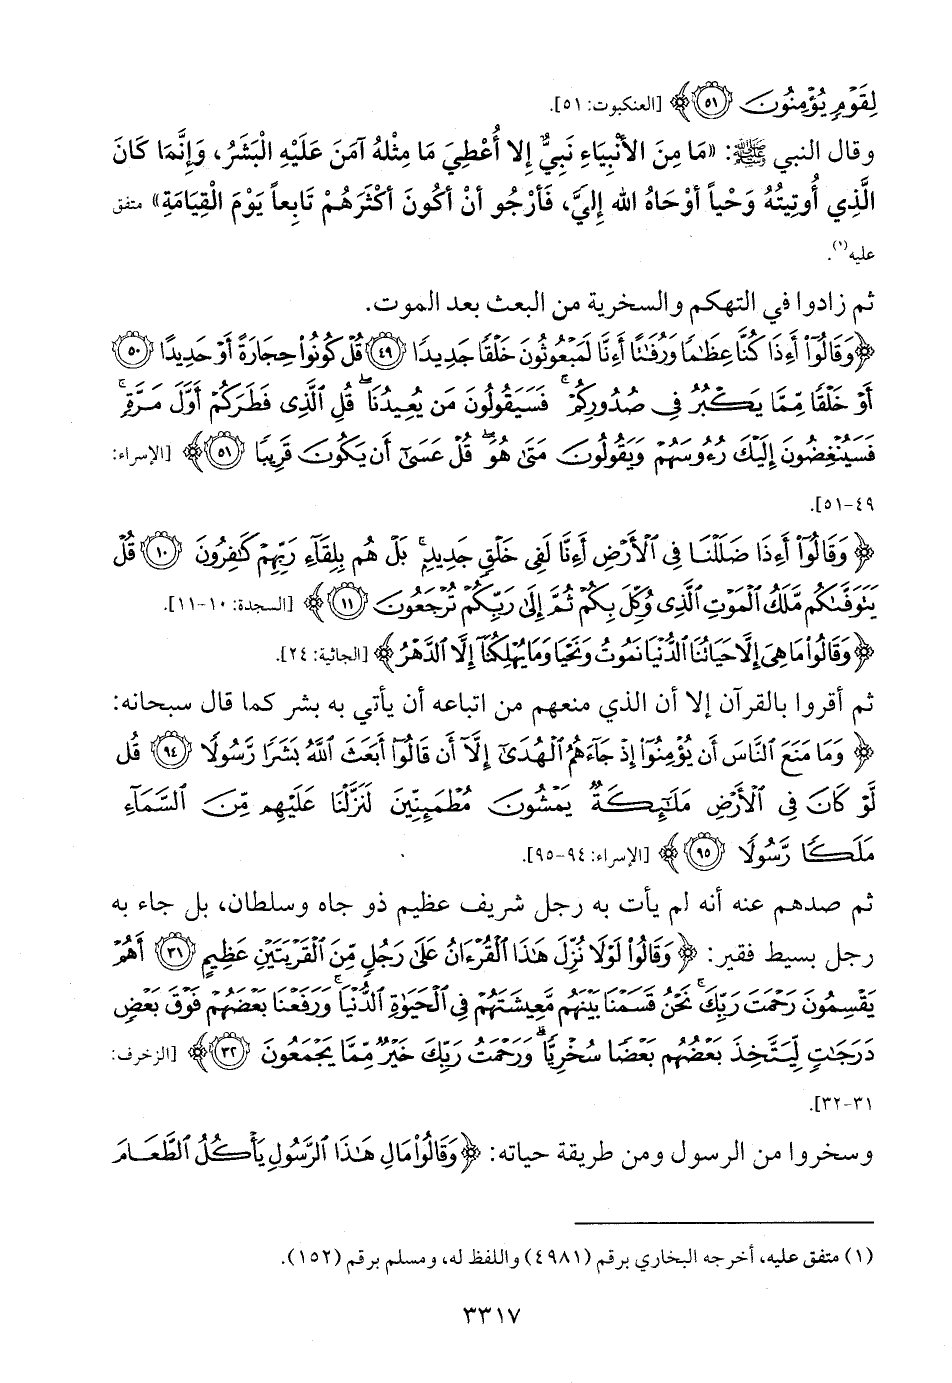 لِقَوْمٍ يُؤْمِنُونَ ﴿٥١﴾ [العنكبوت: ٥١].
وقال النبي ﷺ: «مَا مِنَ الأَنْبِيَاءِ نَبِيٌّ إِلا أُعْطِيَ مَا مِثْلهُ آمَنَ عَلَيْهِ الْبَشَرُ، وَإِنَّمَا كَانَ
الَّذِي أُوتِيتُهُ وَحْياً أوْحَاهُ الله إِليَّ، فَأرْجُو أنْ أكُونَ أكْثَرَهُمْ تَابِعاً يَوْمَ الْقِيَامَةِ» متفق
عليه(١).
ثم زادوا في التهكم والسخرية من البعث بعد الموت.
﴿وَقَالُوٓا۟ أَءِذَا كُنَّا عِظَـٰمًا وَرُفَـٰتًا أَءِنَّا لَمَبْعُوثُونَ خَلْقًا جَدِيدًا ﴿٤٩﴾ قُلْ كُونُوا۟ حِجَارَةً أَوْ حَدِيدًا ﴿٥٠﴾
أَوْ خَلْقًا مِّمَّا يَكْبُرُ فِى صُدُورِكُمْ ۚ فَسَيَقُولُونَ مَن يُعِيدُنَا ۖ قُلِ ٱلَّذِى فَطَرَكُمْ أَوَّلَ مَرَّةٍ ۚ
فَسَيُنْغِضُونَ إِلَيْكَ رُءُوسَهُمْ وَيَقُولُونَ مَتَىٰ هُوَ ۖ قُلْ عَسَىٰٓ أَن يَكُونَ قَرِيبًا ﴿٥١﴾ [الإسراء:
٤٩-٥١].
﴿وَقَالُوٓا۟ أَءِذَا ضَلَلْنَا فِى ٱلْأَرْضِ أَءِنَّا لَفِى خَلْقٍ جَدِيدٍۭ ۚ بَلْ هُم بِلِقَآءِ رَبِّهِمْ كَـٰفِرُونَ ﴿١٠﴾ قُلْ
يَتَوَفَّىٰكُم مَّلَكُ ٱلْمَوْتِ ٱلَّذِى وُكِّلَ بِكُمْ ثُمَّ إِلَىٰ رَبِّكُمْ تُرْجَعُونَ ﴿١١﴾ [السجدة: ١٠-١١].
﴿وَقَالُوا۟ مَا هِىَ إِلَّا حَيَاتُنَا ٱلدُّنْيَا نَمُوتُ وَنَحْيَا وَمَا يُهْلِكُنَآ إِلَّا ٱلدَّهْرُ﴾ [الجاثية: ٢٤].
ثم أقروا بالقرآن إلا أن الذي منعهم من اتباعه أن يأتي به بشر كما قال سبحانه:
﴿وَمَا مَنَعَ ٱلنَّاسَ أَن يُؤْمِنُوٓا۟ إِذْ جَآءَهُمُ ٱلْهُدَىٰٓ إِلَّآ أَن قَالُوٓا۟ أَبَعَثَ ٱللَّهُ بَشَرًا رَّسُولًا ﴿٩٤﴾ قُل
لَّوْ كَانَ فِى ٱلْأَرْضِ مَلَـٰٓئِكَةٌ يَمْشُونَ مُطْمَئِنِّينَ لَنَزَّلْنَا عَلَيْهِم مِّنَ ٱلسَّمَآءِ
مَلَكًا رَّسُولًا ﴿٩٥﴾ [الإسراء: ٩٤-٩٥].
ثم صدهم عنه أنه لم يأت به رجل شريف عظيم ذو جاه وسلطان، بل جاء به
رجل بسيط فقير: ﴿وَقَالُوا۟ لَوْلَا نُزِّلَ هَـٰذَا ٱلْقُرْءَانُ عَلَىٰ رَجُلٍ مِّنَ ٱلْقَرْيَتَيْنِ عَظِيمٍ ﴿٣١﴾ أَهُمْ
يَقْسِمُونَ رَحْمَتَ رَبِّكَ ۚ نَحْنُ قَسَمْنَا بَيْنَهُم مَّعِيشَتَهُمْ فِى ٱلْحَيَوٰةِ ٱلدُّنْيَا ۚ وَرَفَعْنَا بَعْضَهُمْ فَوْقَ بَعْضٍ
دَرَجَـٰتٍ لِّيَتَّخِذَ بَعْضُهُم بَعْضًا سُخْرِيًّا ۗ وَرَحْمَتُ رَبِّكَ خَيْرٌ مِّمَّا يَجْمَعُونَ ﴿٣٢﴾ [الزخرف:
٣١-٣٢].
وسخروا من الرسول ومن طريقة حياته: ﴿وَقَالُوا۟ مَالِ هَـٰذَا ٱلرَّسُولِ يَأْكُلُ ٱلطَّعَامَ
(١) متفق عليه، أخرجه البخاري برقم (٤٩٨١) واللفظ له، ومسلم برقم (١٥٢).
٣٣١٧